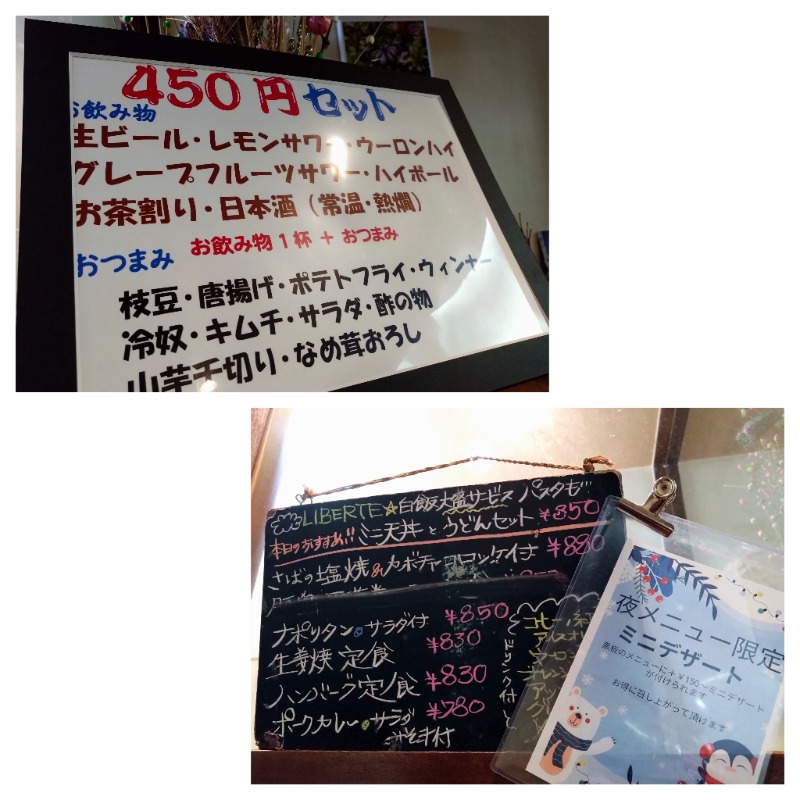 450円セット
お飲み物
生ビール・レモンサワー・ウーロンハイ
グレープフルーツサワー・ハイボール
お茶割り・日本酒（常温・熱燗）
お飲み物1杯 + おつまみ
おつまみ
枝豆・唐揚げ・ポテトフライ・ウィンナー
冷奴・キムチ・サラダ・酢の物
山芋千切り・なめ茸おろし
LIBERTE☆白飯大盛サービス パスタも
本日のおすすめ!! ミニ天丼とうどんセット ¥850
さばの塩焼&カボチャコロッケ付 ¥880
ナポリタン サラダ付 ¥850
生姜焼 定食 ¥830
ハンバーグ定食 ¥830
ポークカレー サラダ ¥780
みそ汁付
ドリンク付
夜メニュー限定
ミニデザート
黒板のメニューに+¥150〜ミニデザート
が付けられます
お得に召し上がって頂けます